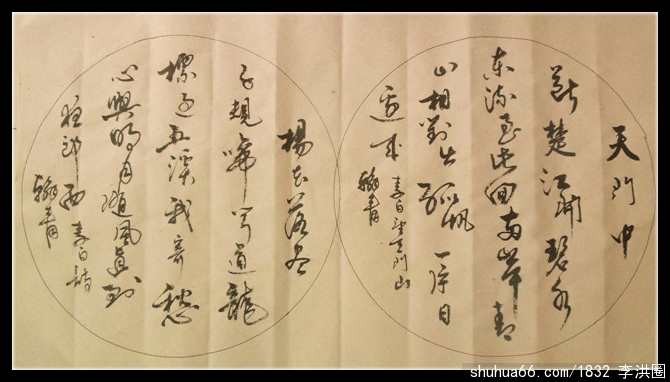 天门中
断楚江開碧水
东流至此回两岸青
山相對出孤帆一片日
边来 李白望天门山
翰青
楊花落尽
子規啼闻道龍
標過五溪我寄愁
心與明月隨風直到
夜郎西 李白詩
翰青
shuhua66.com /1832 李洪圈